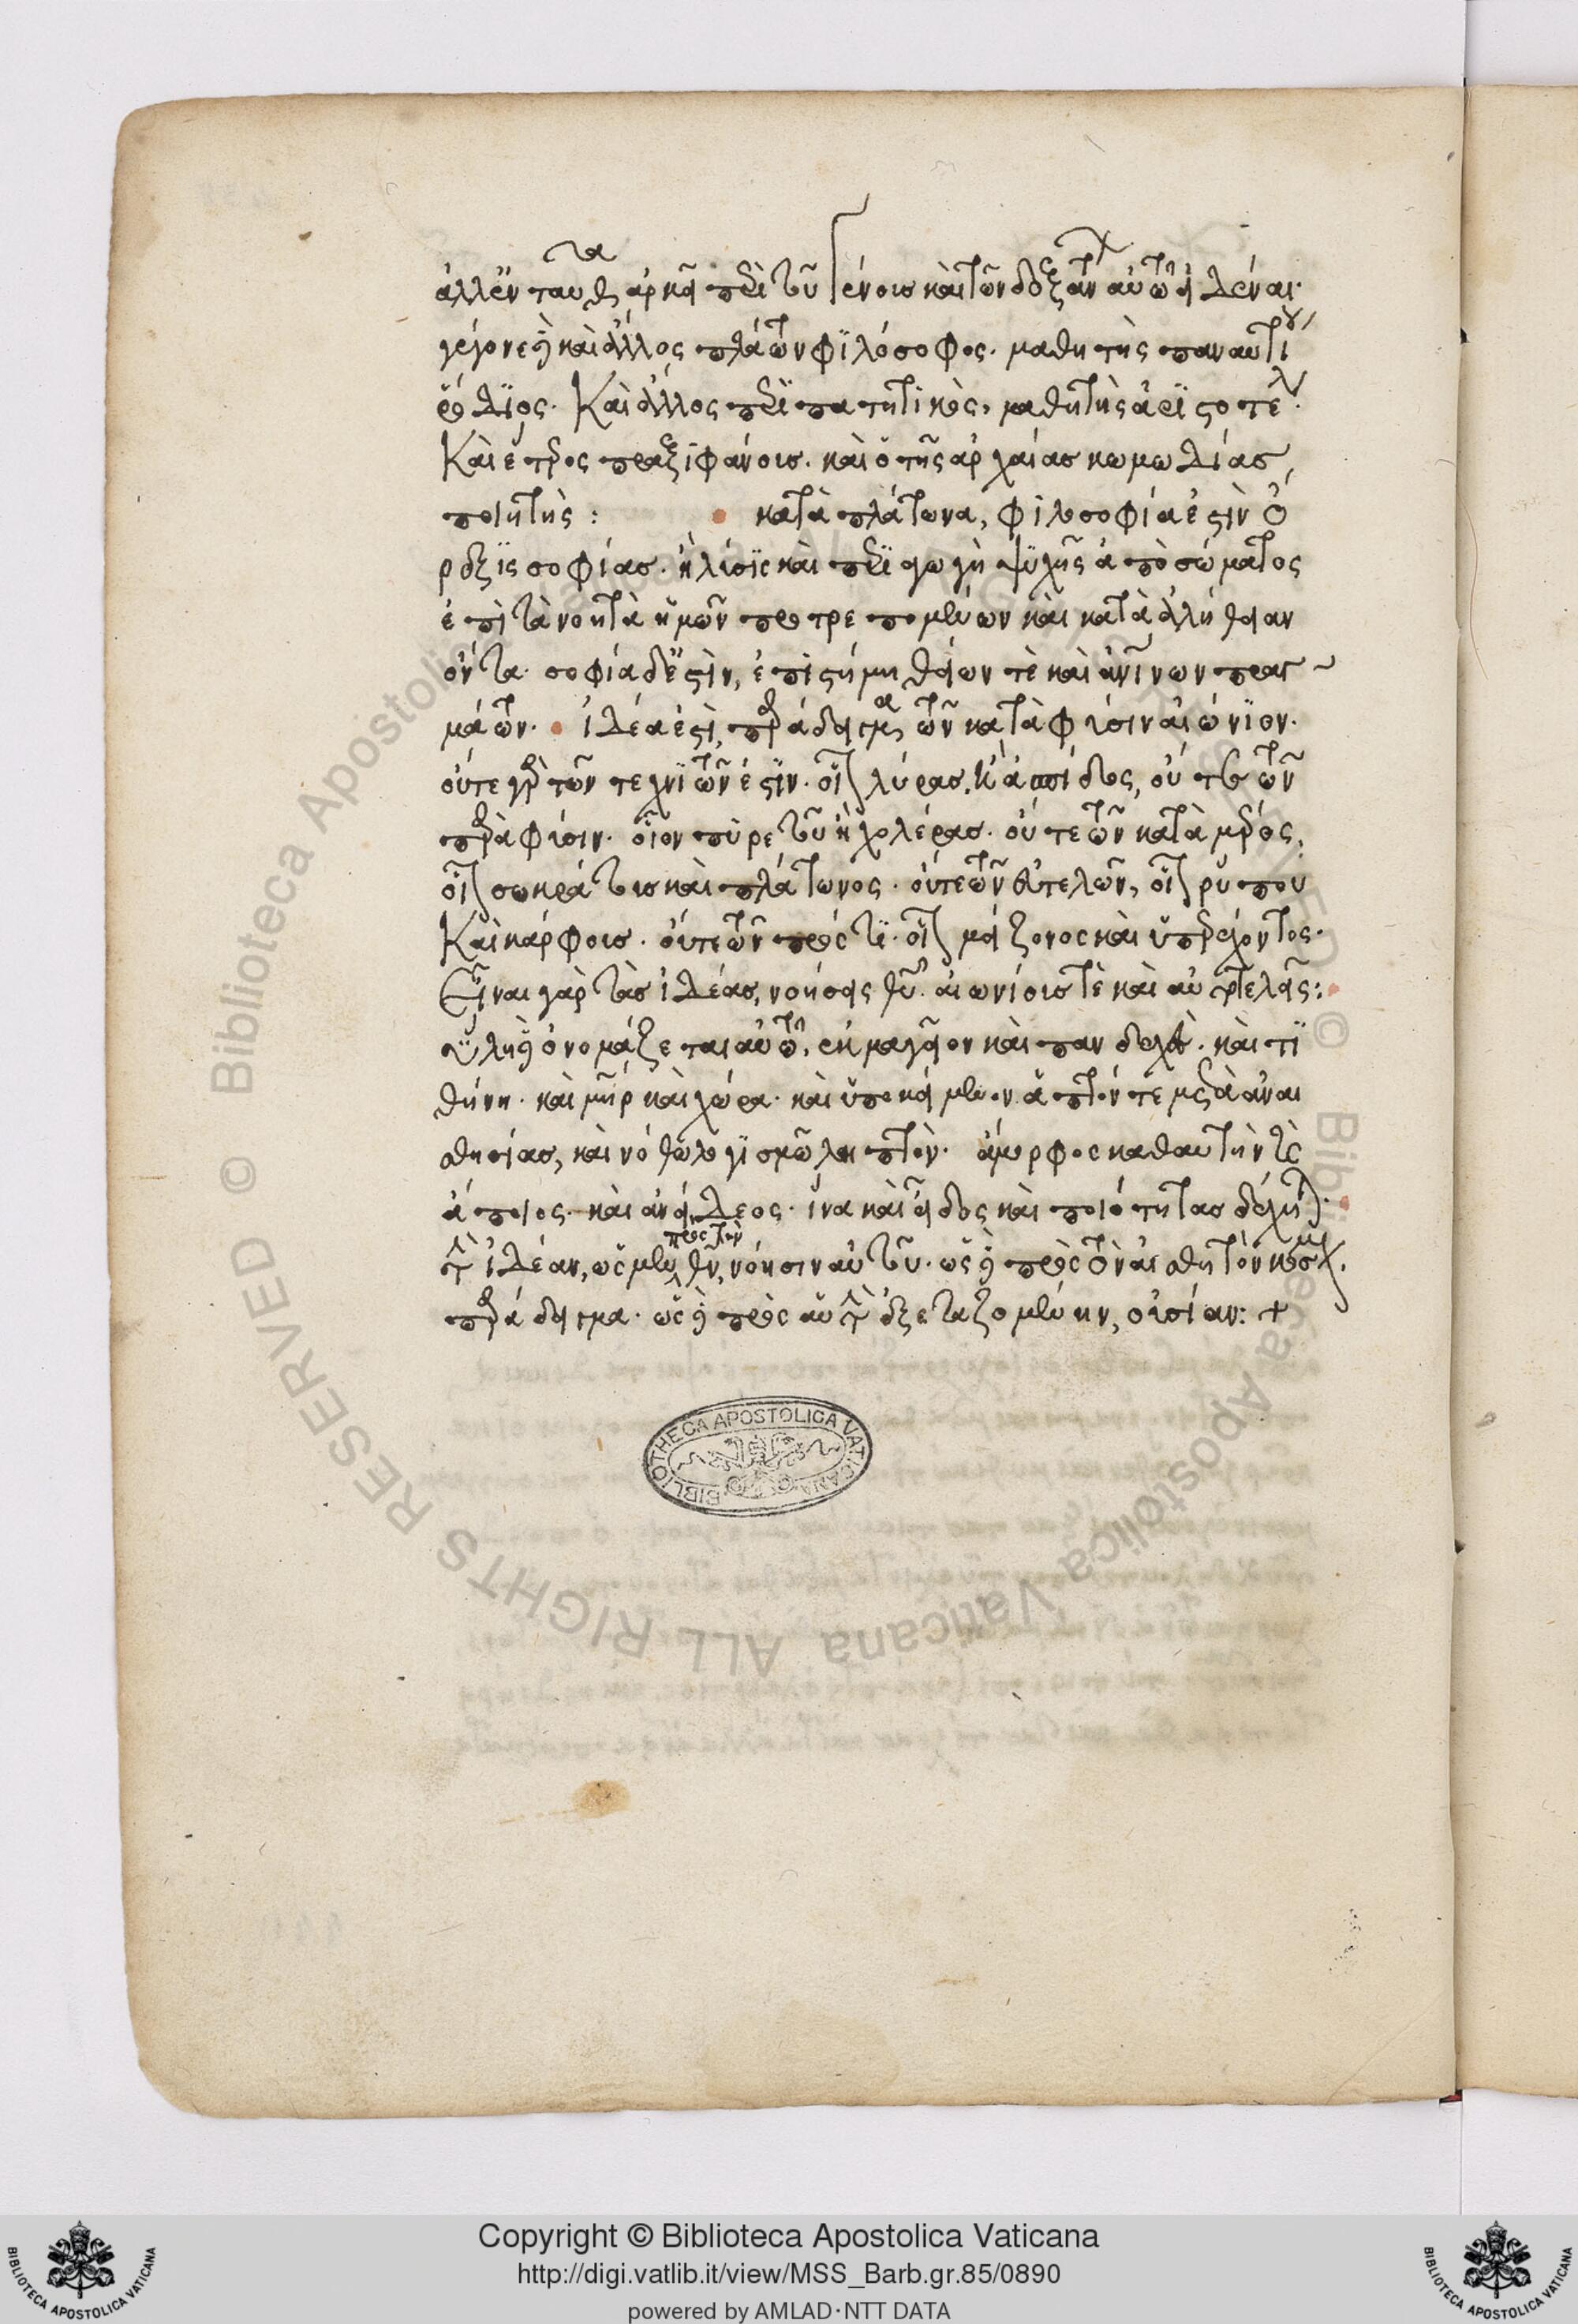 ἀλλ' ἐν ταυθ ἀρκεῖ περὶ τοῦ γένους καὶ τῶν δοξάντων αὐτῶ εἰδέναι·
γέγονε δὲ καὶ ἄλλος πλάτων φϊλόσοφος· μαθητὴς παναιτίου
ῥόδϊος· Καὶ ἄλλος περϊπατητικὸς, μαθητὴς ἀρϊστοτέλους·
Καὶ ἕτερος πραξιφάνους· καὶ ὁ τῆς ἀρχαίας κωμωδίας
ποιητὴς : κατὰ πλάτωνα, φιλοσοφία ἐστὶν ὄ
ρεξϊς σοφίας· ἢ λύσϊς καὶ περϊαγωγὴ ψϋχῆς ἀπὸ σώματος
ἐπὶ τὰ νοητὰ ἡμῶν προτρεπομένων καὶ κατὰ ἀλήθειαν
ὄντα· σοφία δ' ἐστὶν, ἐπιστήμη θείων τὲ καὶ ἀνθρωπίνων πραγ
μάτων· ἰδέα ἐστὶ, παράδειγμα τῶν κατὰ φύσιν αἰώνϊον·
οὔτε γὰρ τῶν τεχνϊτῶν ἐστϊν· οἷον λύρας, ἢ ἀσπίδος, οὔτε τῶν
παρὰ φύσιν· οἷον πϋρετοῦ ἢ χολέρας· οὔτε τῶν κατὰ μέρος,
οἷον σωκράτους καὶ πλάτωνος· οὔτε τῶν εὐτελῶν, οἷον ῥύπου
Καὶ κάρφους· οὔτε τῶν πρός τϊ· οἷον μείζονος καὶ ὑπερέχοντος·
Εἶναι γὰρ τὰς ἰδέας, νοήσεις θεοῦ αἰωνίους τὲ καὶ αὐτοτελεῖς:
ὕλη δὲ ὀνομάζεται αὐτῶ, ἐκμαγεῖον καὶ πανδεχὲς· καὶ τϊ
θήνη· καὶ μήτηρ καὶ χώρα· καὶ ὑποκείμενον ἁπτόν τε μετὰ ἀναι
σθησίας, καὶ νόθω λογϊσμῶ ληπτὸν· ἄμορφος καθ' αὑτὴν τὲ
ἄποιος· καὶ ἀνείδεος· ἵνα καὶ εἶδος καὶ ποιότητας δέχηται·
τὴν ἰδέαν, ὡς μὲν πρὸς τὸν θεὸν, νόησιν αὐτοῦ· ὡς δὲ πρὸς τὸν αἰσθητὸν κόσμον
παράδειγμα· ὡς δὲ πρὸς αὑτὴν ἐξεταζομένην, οὐσίαν: +
BIBLIOTHECA APOSTOLICA VATICANA
© Biblioteca Apostolica Vaticana ALL RIGHTS RESERVED
Copyright © Biblioteca Apostolica Vaticana
http://digi.vatlib.it/view/MSS_Barb.gr.85/0890
powered by AMLAD·NTT DATA
BIBLIOTECA APOSTOLICA VATICANA
BIBLIOTECA APOSTOLICA VATICANA